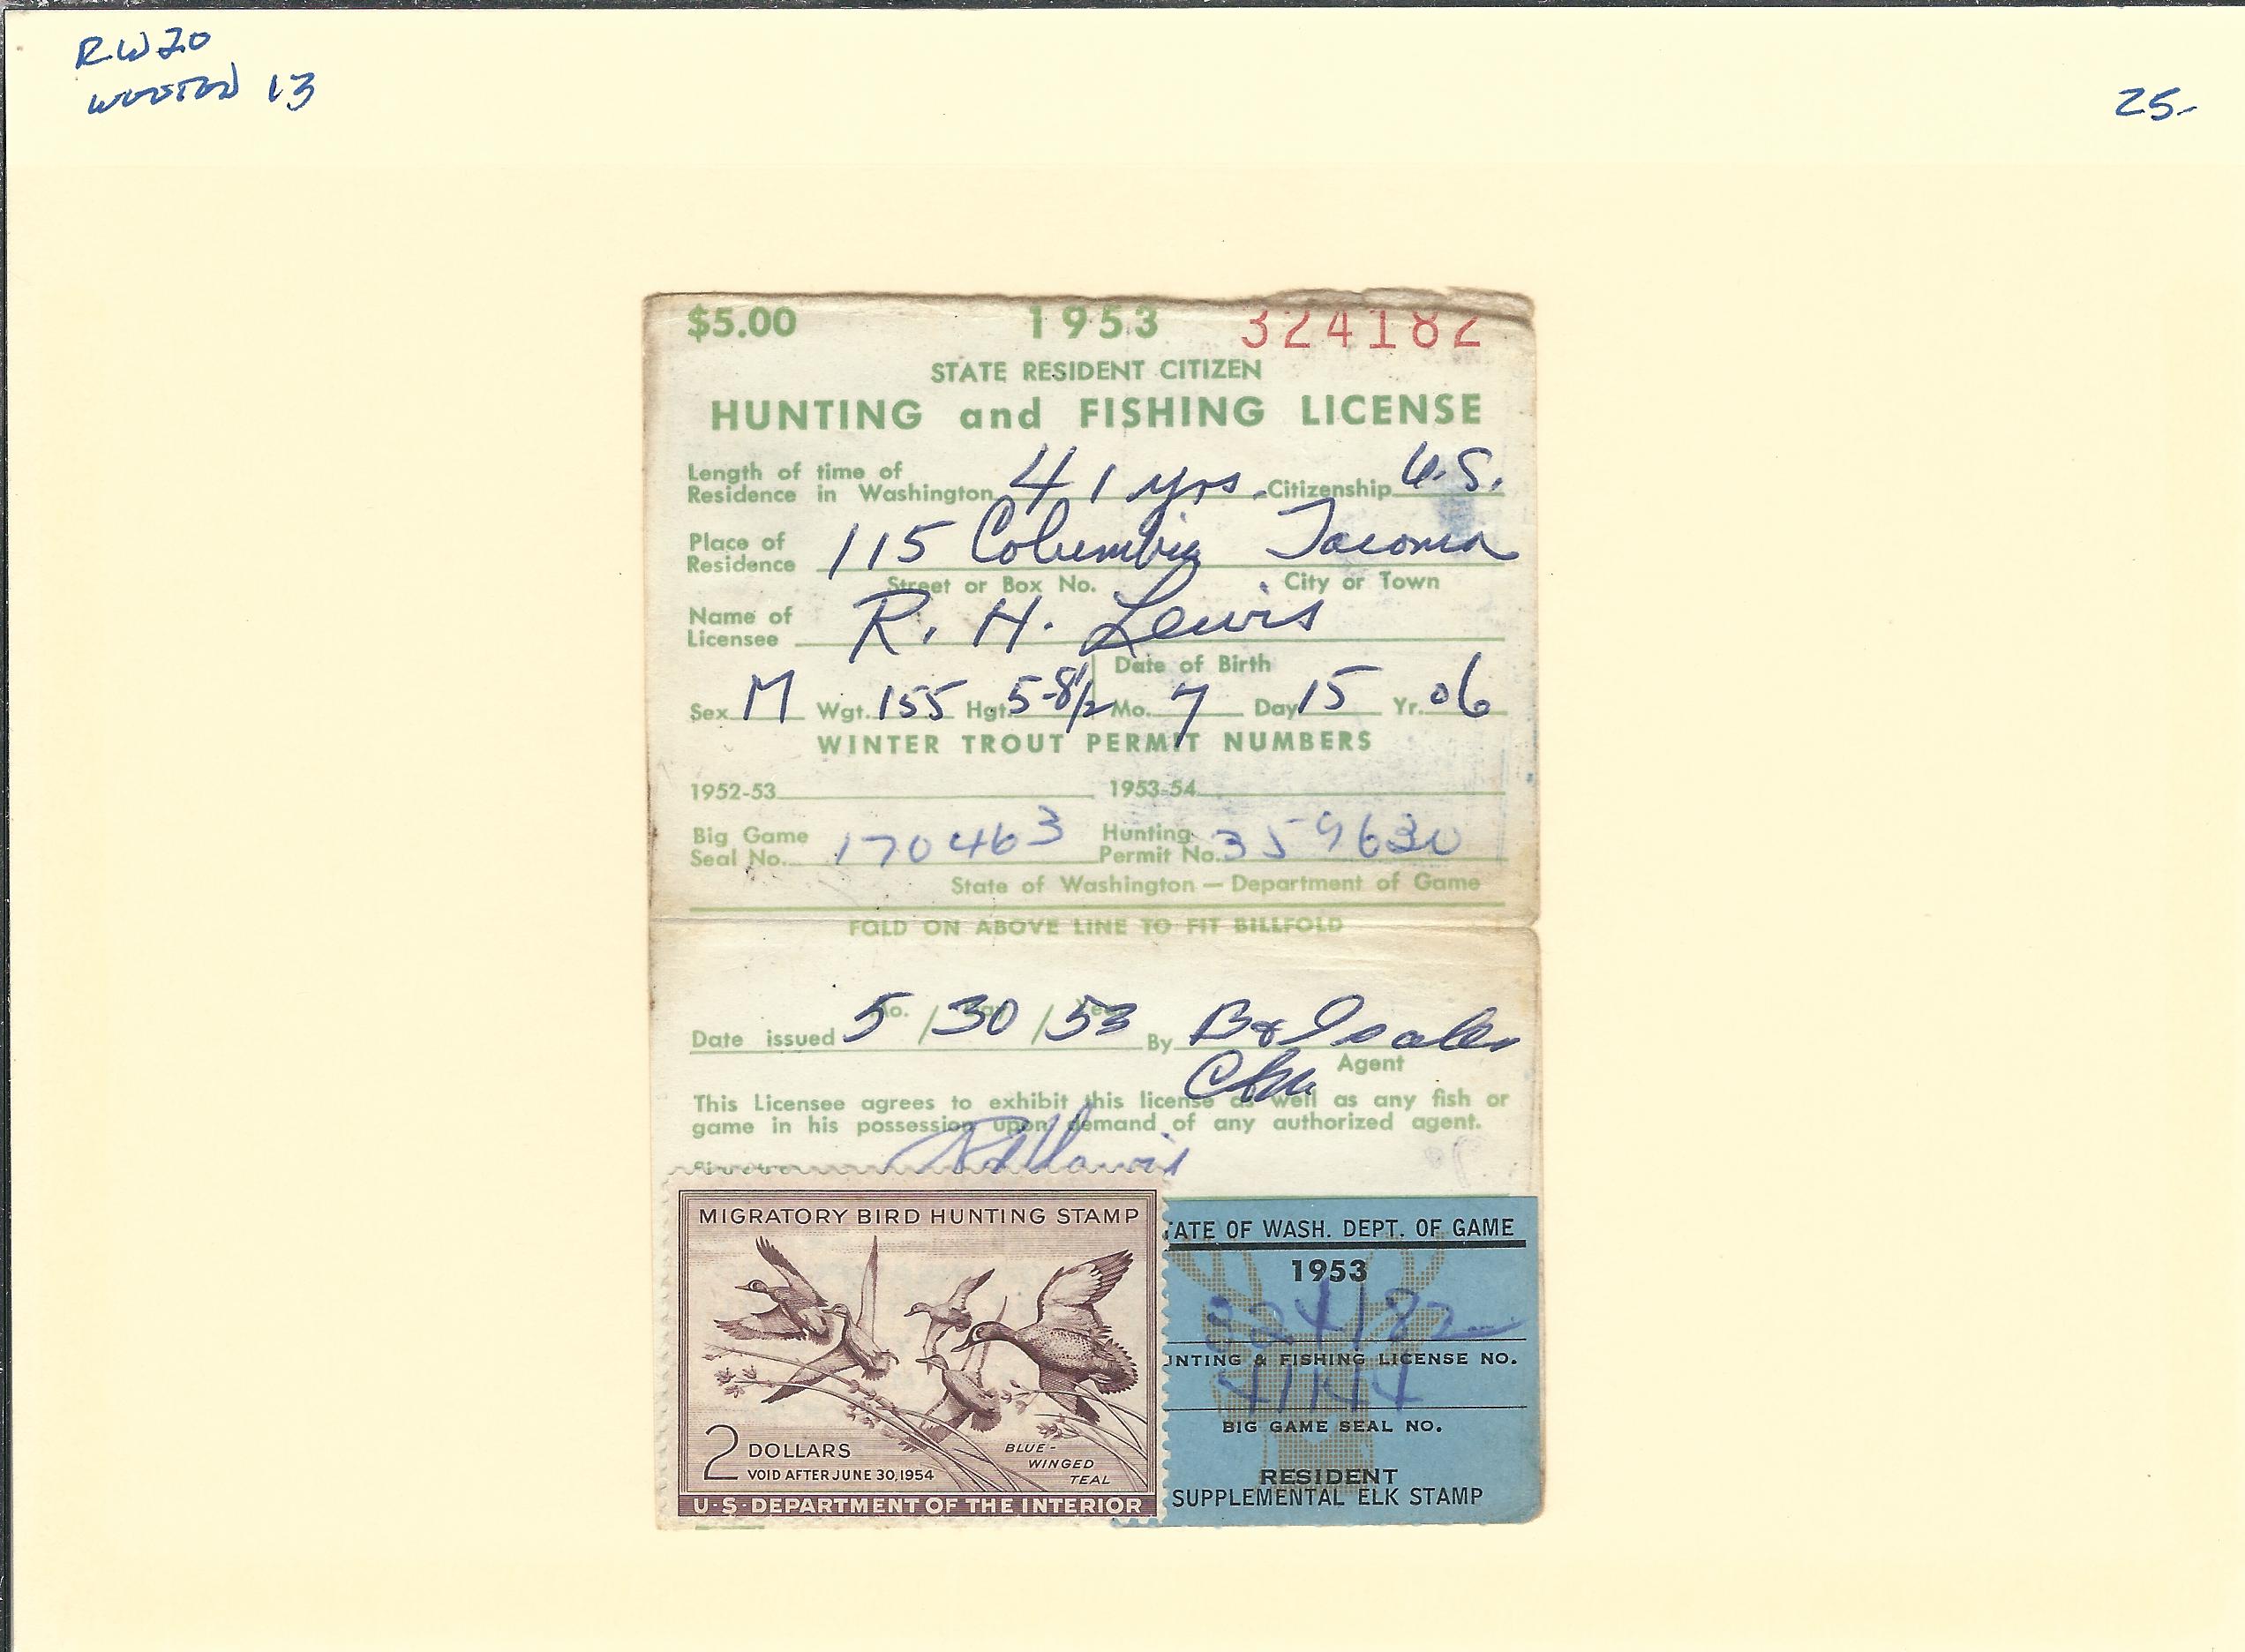 RW20
WOOTON 13
25-
$5.00 1953 324182
STATE RESIDENT CITIZEN
HUNTING and FISHING LICENSE
Length of time of
Residence in Washington 41 yrs. Citizenship U.S.
Place of
Residence 115 Columbia Tacoma
Street or Box No. City or Town
Name of
Licensee R. H. Lewis
Date of Birth
Sex M Wgt. 155 Hgt. 5-8½ Mo. 7 Day 15 Yr. 06
WINTER TROUT PERMIT NUMBERS
1952-53 1953-54
Big Game Hunting
Seal No. 170463 Permit No. 359630
State of Washington — Department of Game
FOLD ON ABOVE LINE TO FIT BILLFOLD
Date issued 5/30/53 By
Agent
This Licensee agrees to exhibit this license as well as any fish or
game in his possession upon demand of any authorized agent.
RH Lewis
MIGRATORY BIRD HUNTING STAMP
2 DOLLARS
VOID AFTER JUNE 30, 1954
BLUE-
WINGED
TEAL
U·S·DEPARTMENT OF THE INTERIOR
TATE OF WASH. DEPT. OF GAME
1953
324182
UNTING & FISHING LICENSE NO.
41144
BIG GAME SEAL NO.
RESIDENT
SUPPLEMENTAL ELK STAMP